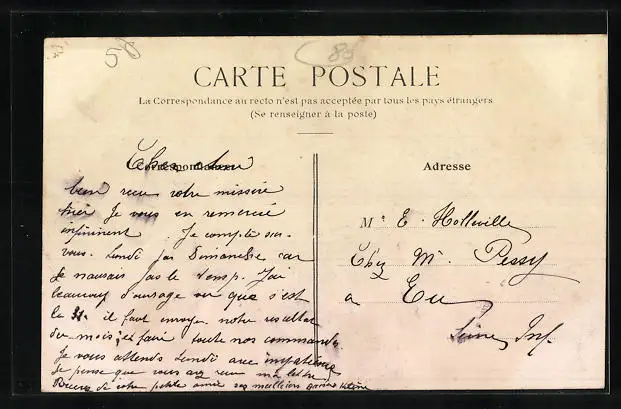 58
85
CARTE POSTALE
La Correspondance au recto n'est pas acceptée par tous les pays étrangers
(Se renseigner à la poste)
Correspondance
Cher
bien reçu votre missive
hier Je vous en remercie
infiniment. Je compte sur
vous. Lundi pas Dimanche car
Je n'aurais pas le temp. J'ai
beaucoup d'ouvrage vu que s'est
le 31 il faut envoyer notre resultat
du mois, et faire toute nos commande
Je vous attends Lundi avec impatience
Je pense que vous avez reçu ma lettre
de votre petite amie ses meilleurs
Adresse
Mr E. Holleville
Chez Mr. Pessy
a Eu
Seine Inf.